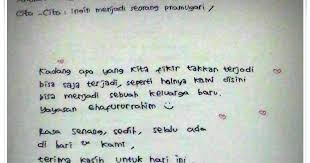 Cita-Cita: Ingin menjadi seorang pramugari,
Kadang apa yang kita fikir takkan terjadi
bisa saja terjadi, seperti halnya kami disini
bisa menjadi sebuah keluarga baru.
Yayasan Ghafururrahim
Rasa senang, sedih, selalu ada
di hari kami,
terima kasih untuk hari ini